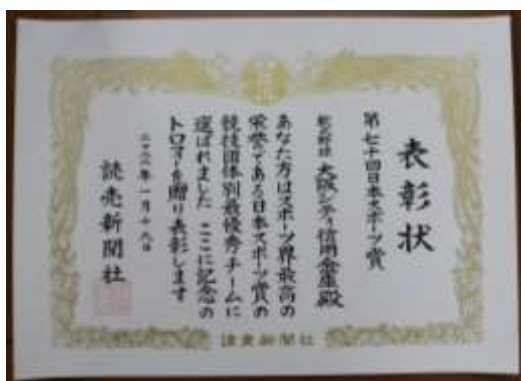 表彰状
第七十回日本スポーツ賞
軟式野球 大阪シティ信用金庫殿
あなた方はスポーツ界最高の
栄誉である日本スポーツ賞の
競技団体別最優秀チームに
選ばれました ここに記念の
トロフィーを贈り表彰します
年一月十八日
読売新聞社
読売新聞社